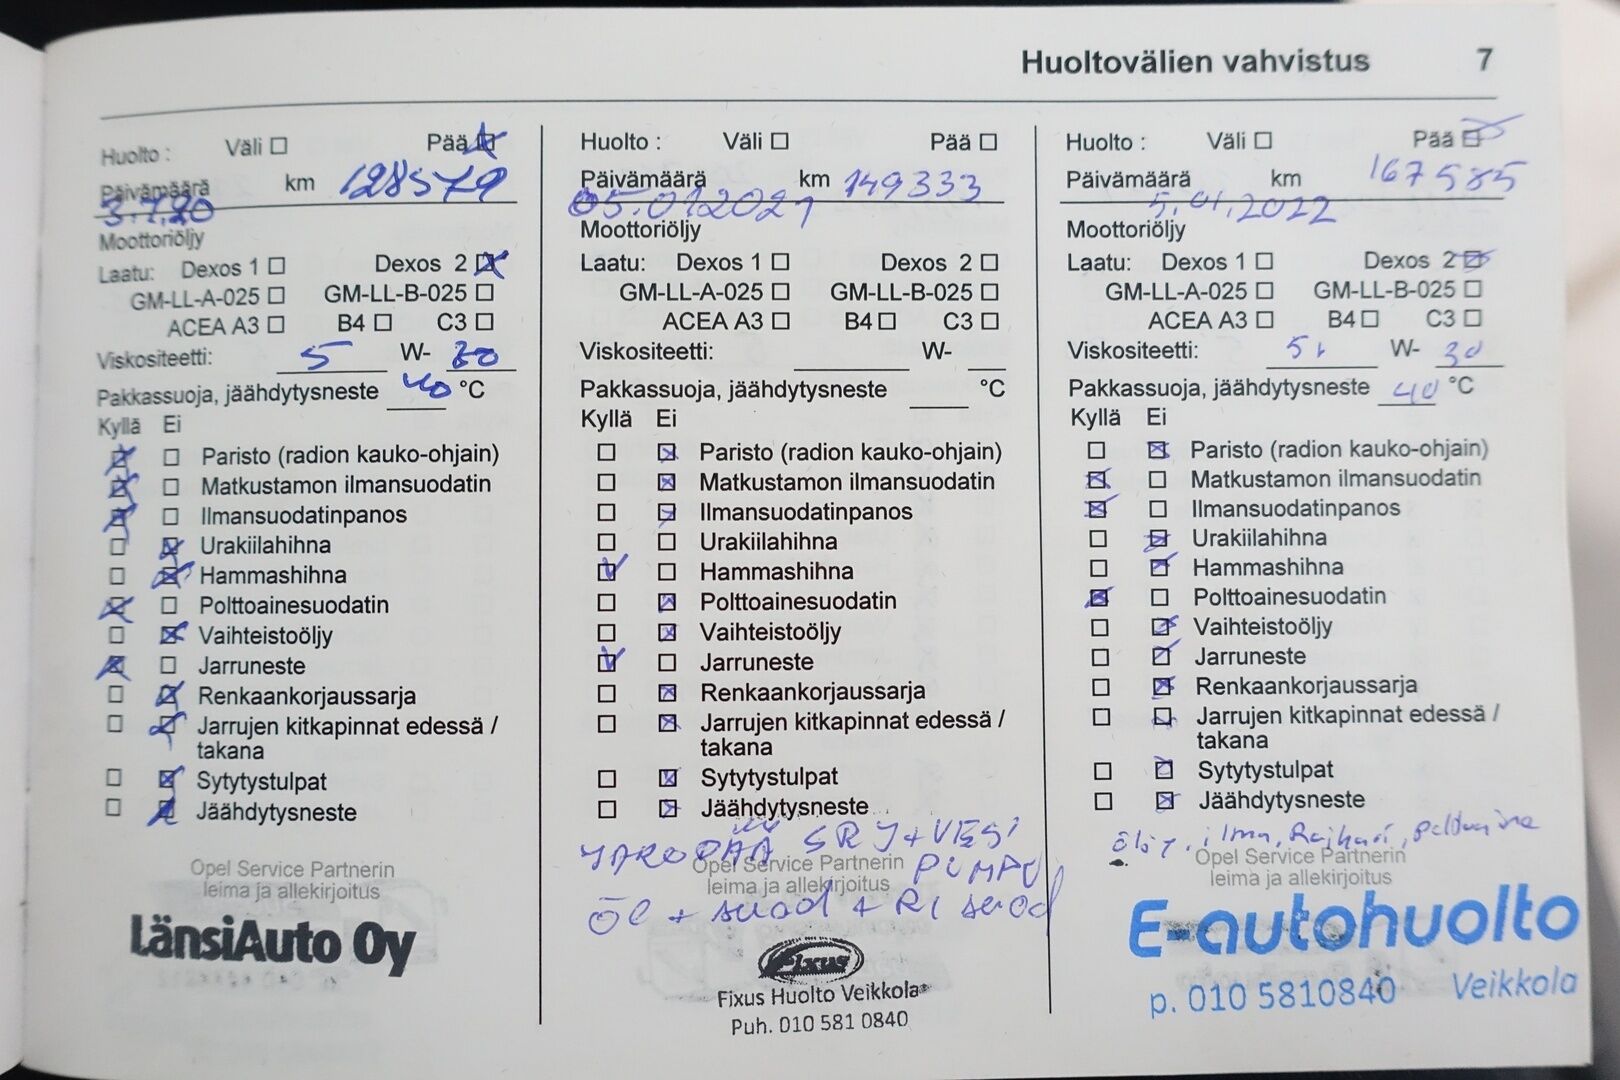 Huoltovälien vahvistus 7
Huolto : Väli Pää
Päivämäärä km 128579
3.7.20
Moottoriöljy
Laatu: Dexos 1 Dexos 2
GM-LL-A-025 GM-LL-B-025
ACEA A3 B4 C3
Viskositeetti: 5 W- 30
Pakkassuoja, jäähdytysneste 40 °C
Kyllä Ei
Paristo (radion kauko-ohjain)
Matkustamon ilmansuodatin
Ilmansuodatinpanos
Urakiilahihna
Hammashihna
Polttoainesuodatin
Vaihteistoöljy
Jarruneste
Renkaankorjaussarja
Jarrujen kitkapinnat edessä /
takana
Sytytystulpat
Jäähdytysneste
Opel Service Partnerin
leima ja allekirjoitus
LänsiAuto Oy
Huolto : Väli Pää
Päivämäärä km 149333
05.01.2021
Moottoriöljy
Laatu: Dexos 1 Dexos 2
GM-LL-A-025 GM-LL-B-025
ACEA A3 B4 C3
Viskositeetti: W-
Pakkassuoja, jäähdytysneste °C
Kyllä Ei
Paristo (radion kauko-ohjain)
Matkustamon ilmansuodatin
Ilmansuodatinpanos
Urakiilahihna
Hammashihna
Polttoainesuodatin
Vaihteistoöljy
Jarruneste
Renkaankorjaussarja
Jarrujen kitkapinnat edessä /
takana
Sytytystulpat
Jäähdytysneste
JAKOPÄÄ SRJ + VESI
Opel Service Partnerin PUMPU
leima ja allekirjoitus
ÖL + suod + RI suod
Fixus
Fixus Huolto Veikkola
Puh. 010 581 0840
Huolto : Väli Pää
Päivämäärä km 167585
5.01.2022
Moottoriöljy
Laatu: Dexos 1 Dexos 2
GM-LL-A-025 GM-LL-B-025
ACEA A3 B4 C3
Viskositeetti: 5 W- 30
Pakkassuoja, jäähdytysneste 40 °C
Kyllä Ei
Paristo (radion kauko-ohjain)
Matkustamon ilmansuodatin
Ilmansuodatinpanos
Urakiilahihna
Hammashihna
Polttoainesuodatin
Vaihteistoöljy
Jarruneste
Renkaankorjaussarja
Jarrujen kitkapinnat edessä /
takana
Sytytystulpat
Jäähdytysneste
ilma, Raihari,
Opel Service Partnerin
leima ja allekirjoitus
E-autohuolto
p. 010 5810840 Veikkola